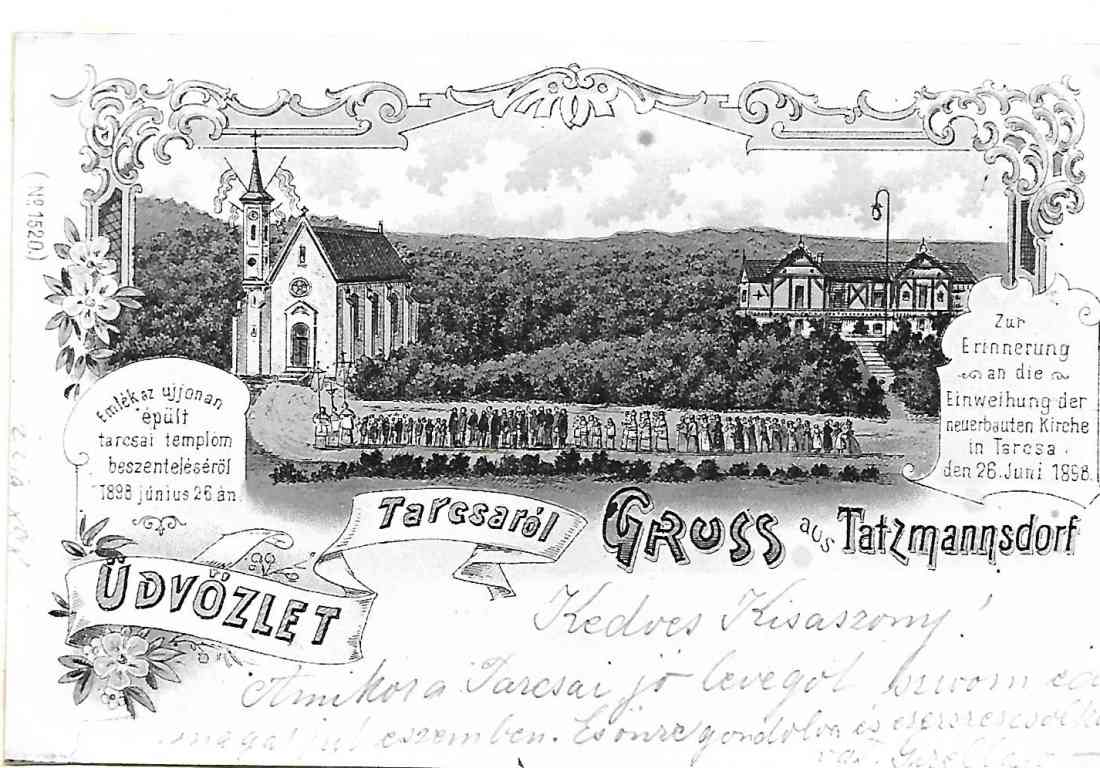 (Nº 1520)
Emlék az ujjonan
épült
tarcsai templom
beszenteléséről
1898 június 26 án
Zur
Erinnerung
an die
Einweihung der
neuerbauten Kirche
in Tarcsa.
den 26. Juni 1898.
ÜDVÖZLET
Tarcsaról
GRUSS aus Tatzmannsdorf
Kedves Kisaszony!
Amikor a Tarcsai jó levegőt szivom
eszemben. Es önre gondolva és